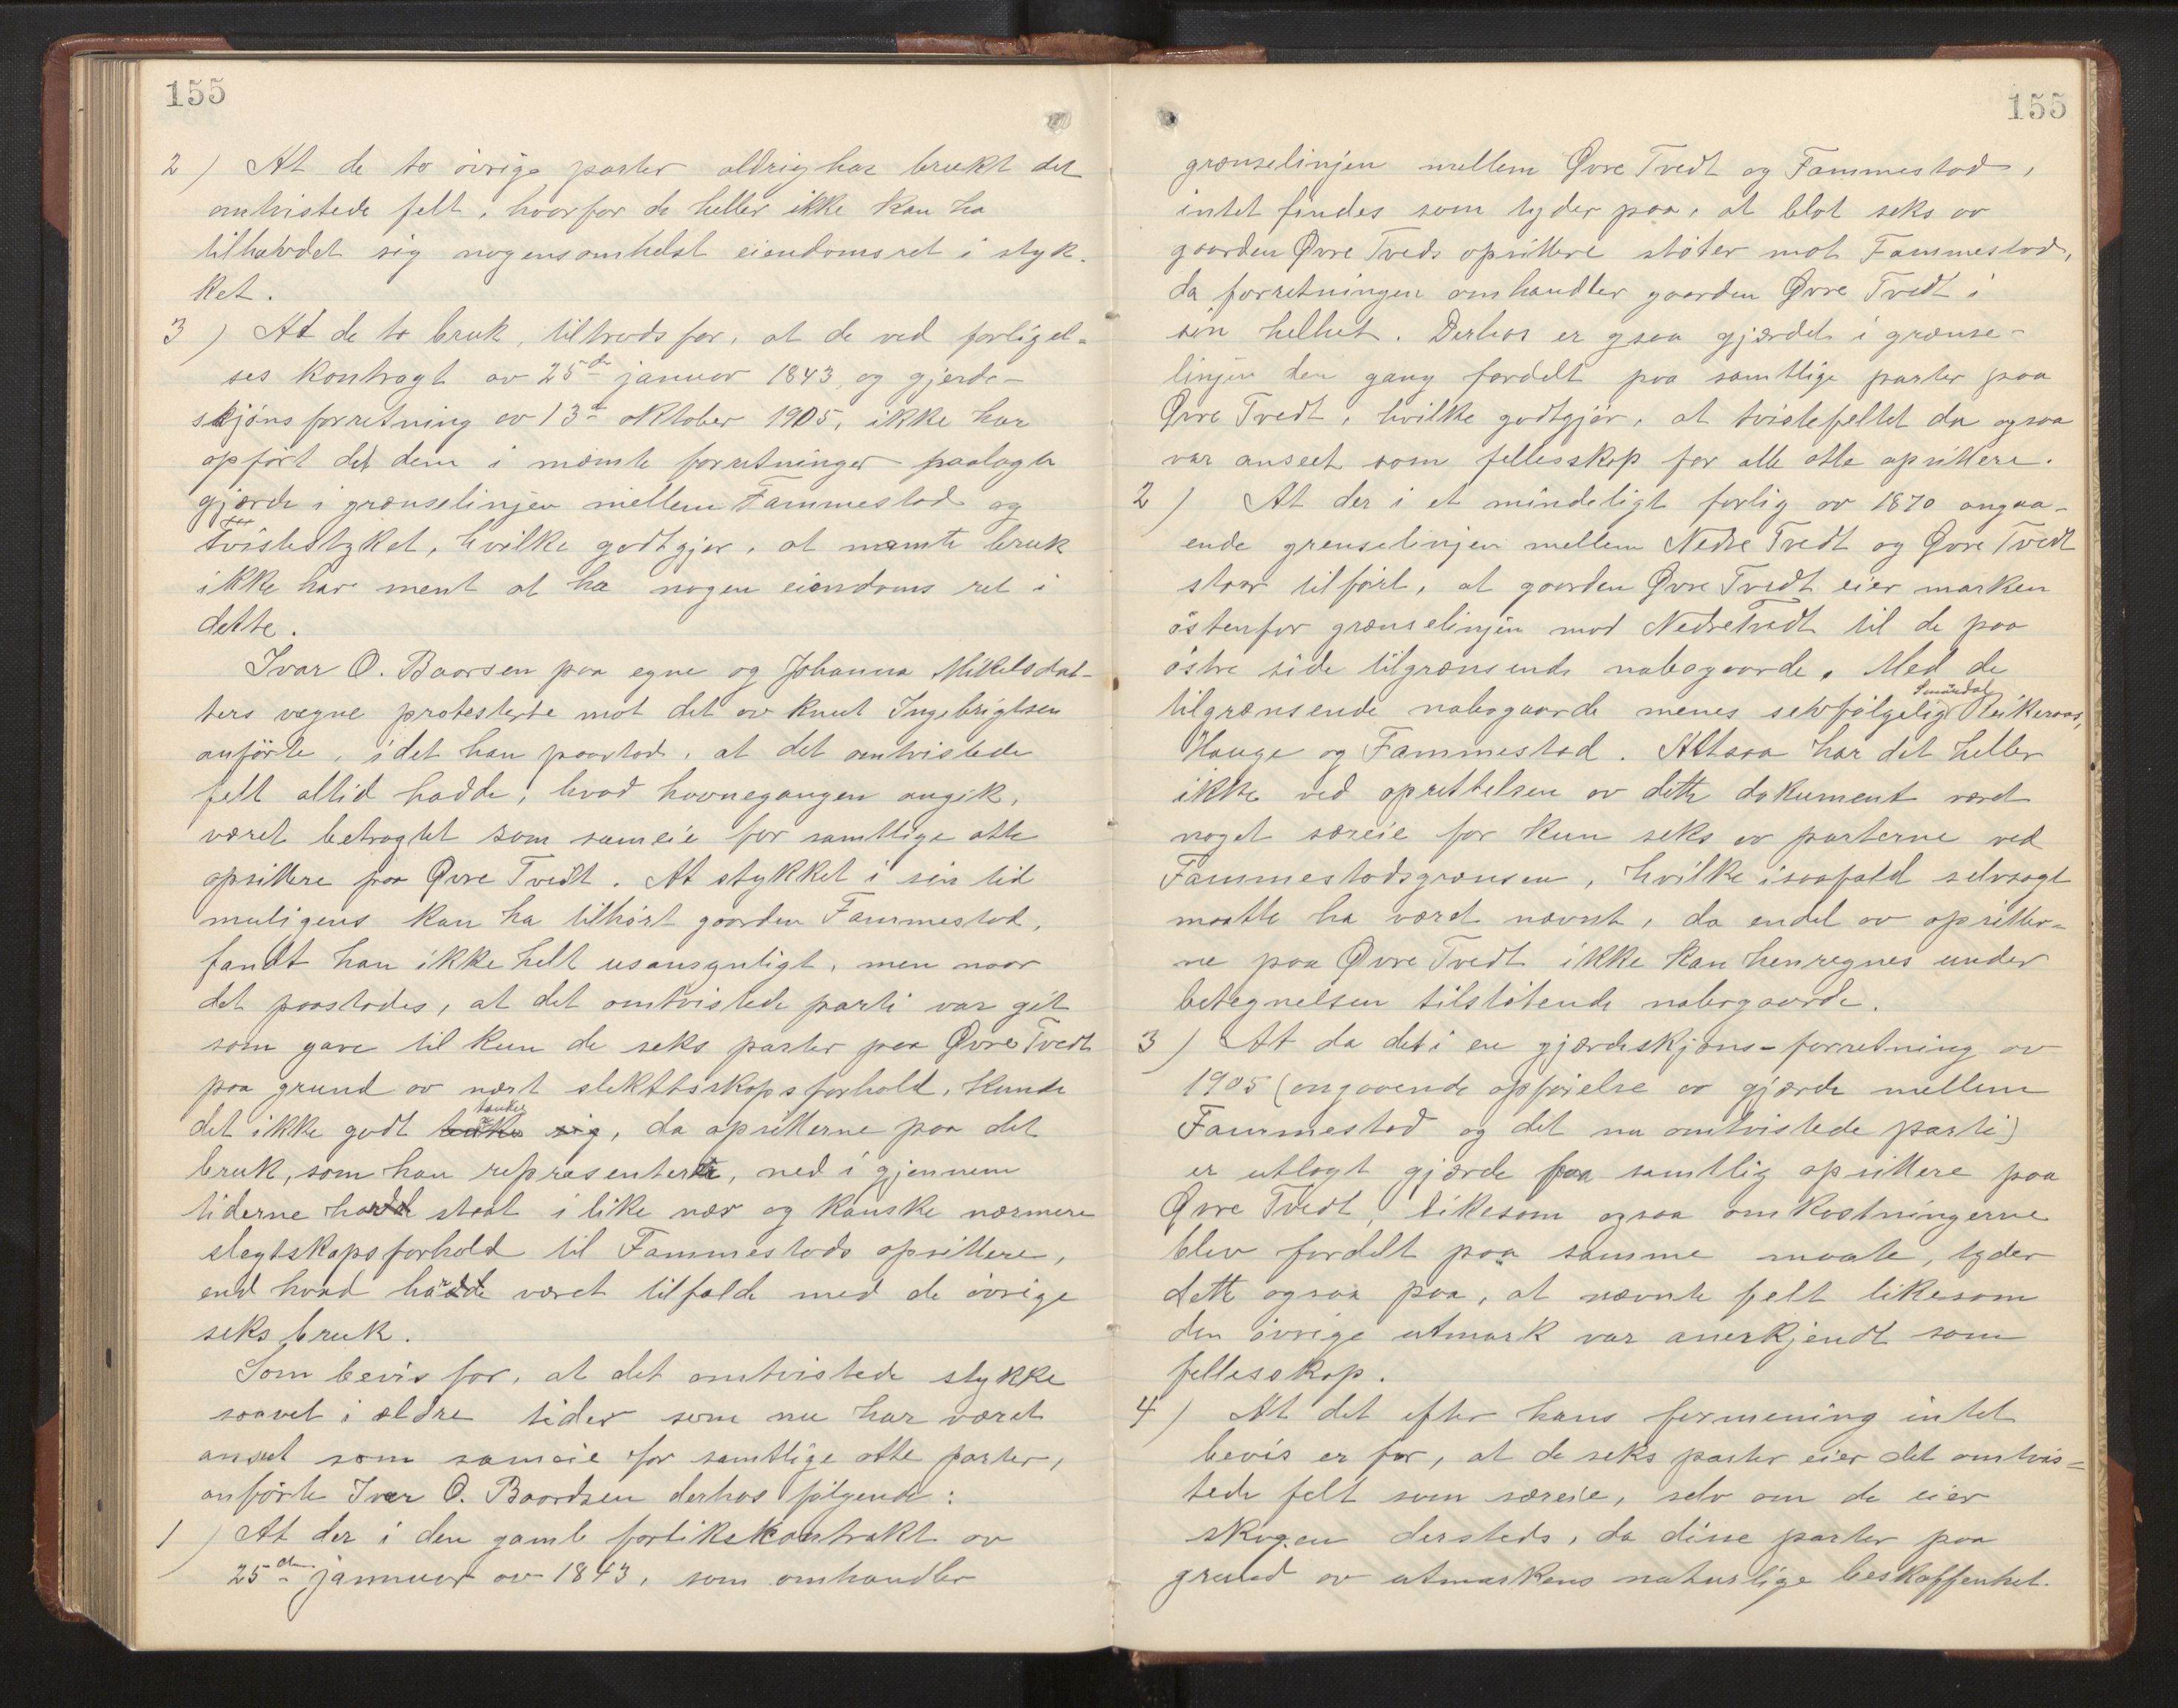 155
2) At de to övrige parter aldrig har brukt det
omtvistede felt, hvorfor de heller ikke kan ha
tilhævdet sig nogensomhelst eiendomsret i styk-
ket.
3) At de to bruk, tiltrods for, at de ved forligel-
ses kontragt av 25de januar 1843, og gjerde-
skjönsforretning av 13de oktober 1905, ikke har
opfört det dem i nævnte forretninger paalagte
gjærde i grænselinjen mellem Fammestad og
tvistestykket, hvilke godtgjør, at nævnte bruk
ikke har ment at ha nogen eiendoms ret i
dette.
Ivar O. Baarsen paa egne og Johanna Mikelsdat-
ters vegne protesterte mot det av Knut Ingebrigtsen
anförte, idet han paastod, at det omtvistede
felt altid hadde, hvad havnegangen angik,
været betragtet som sameie for samtlige otte
opsittere paa Øvre Tvedt. At stykket i sin tid
muligens kan ha tilhört gaarden Fammestad,
fandt han ikke helt usansynligt, men naar
det paastodes, at det omtvistede parti var git
som gave til kun de seks parter paa Øvre Tvedt
paa grund av nært slektskapsforhold, kunde
det ikke godt tænkes, da opsitterne paa det
bruk, som han repræsenterte, ned i gjennem
tiderne har staat i like nær og kanske nærmere
slegtskapsforhold til Fammestads opsittere,
end hvad hadde været tilfælde med de övrige
seks bruk.
Som bevis for, at det omtvistede stykke
saavel i ældre tider som nu har været
anseet som sameie for samtlige otte parter,
anförte Ivar O. Baardsen derhos fölgende:
1) At der i den gamle forlikskontrakt av
25de jannuar av 1843, som omhandler
155
grænselinjen mellem Øvre Tvedt og Fammestad,
intet findes som tyder paa, at blot seks av
gaarden Øvre Tveds opsittere stöter mot Fammestad,
da forretningen omhandler gaarden Øvre Tvedt i
sin helhet. Derhos er gsaa gjærdet i grænse-
linjen den gang fordelt paa samtlige parter paa
Øvre Tvedt, hvilke godtgjör, at tvistefeltet da ogsaa
var anseet som fellesskap for alle otte opsittere.
2) At der i et mindeligt forlig av 1870 angaa-
ende grenselinjen mellem Nedre Tvedt og Øvre Tvedt
staar tilfört, at gaarden Øvre Tvedt eier marken
östenfor grænselinjen mod Nedre Tvedt til de paa
östre side tilgrænsende nabogaarde. Med de
tilgrænsende nabogaarde menes selvfölgelig Smördal
Hauge og Fammestad. Altsaa har det heller
ikke ved oprettelsen av dette dokument været
noget særeie for kun seks av parterne ved
Fammestadsgrænsen, hvilke isaafald selvsagt
maatte ha været nævnt, da endel av opsitter-
ne paa Øvre Tvedt ikke kan henregnes under
betegnelsen tilstötende nabogaarde.
3) At da det i en gjærdeskjöns-forretning av
1905 (angaaende opförelse av gjærde mellem
Fammestad og det nu omtvistede parti)
er utlagt gjærde paa samtlig opsittere paa
Øvre Tvedt, likesom ogsaa omkostningerne
blev fordelt paa samme maate, tyder
dette ogsaa paa, at nævnte felt likesom
den övrige utmark var anerkjendt som
fellesskap.
4) At det efter hans formening intet
bevis er for, at de seks parter eier det omtvis-
tede felt som særeie, selv om de eier
skogen dersteds, da disse parter paa
grund av utmarkens naturlige beskaffenhet.